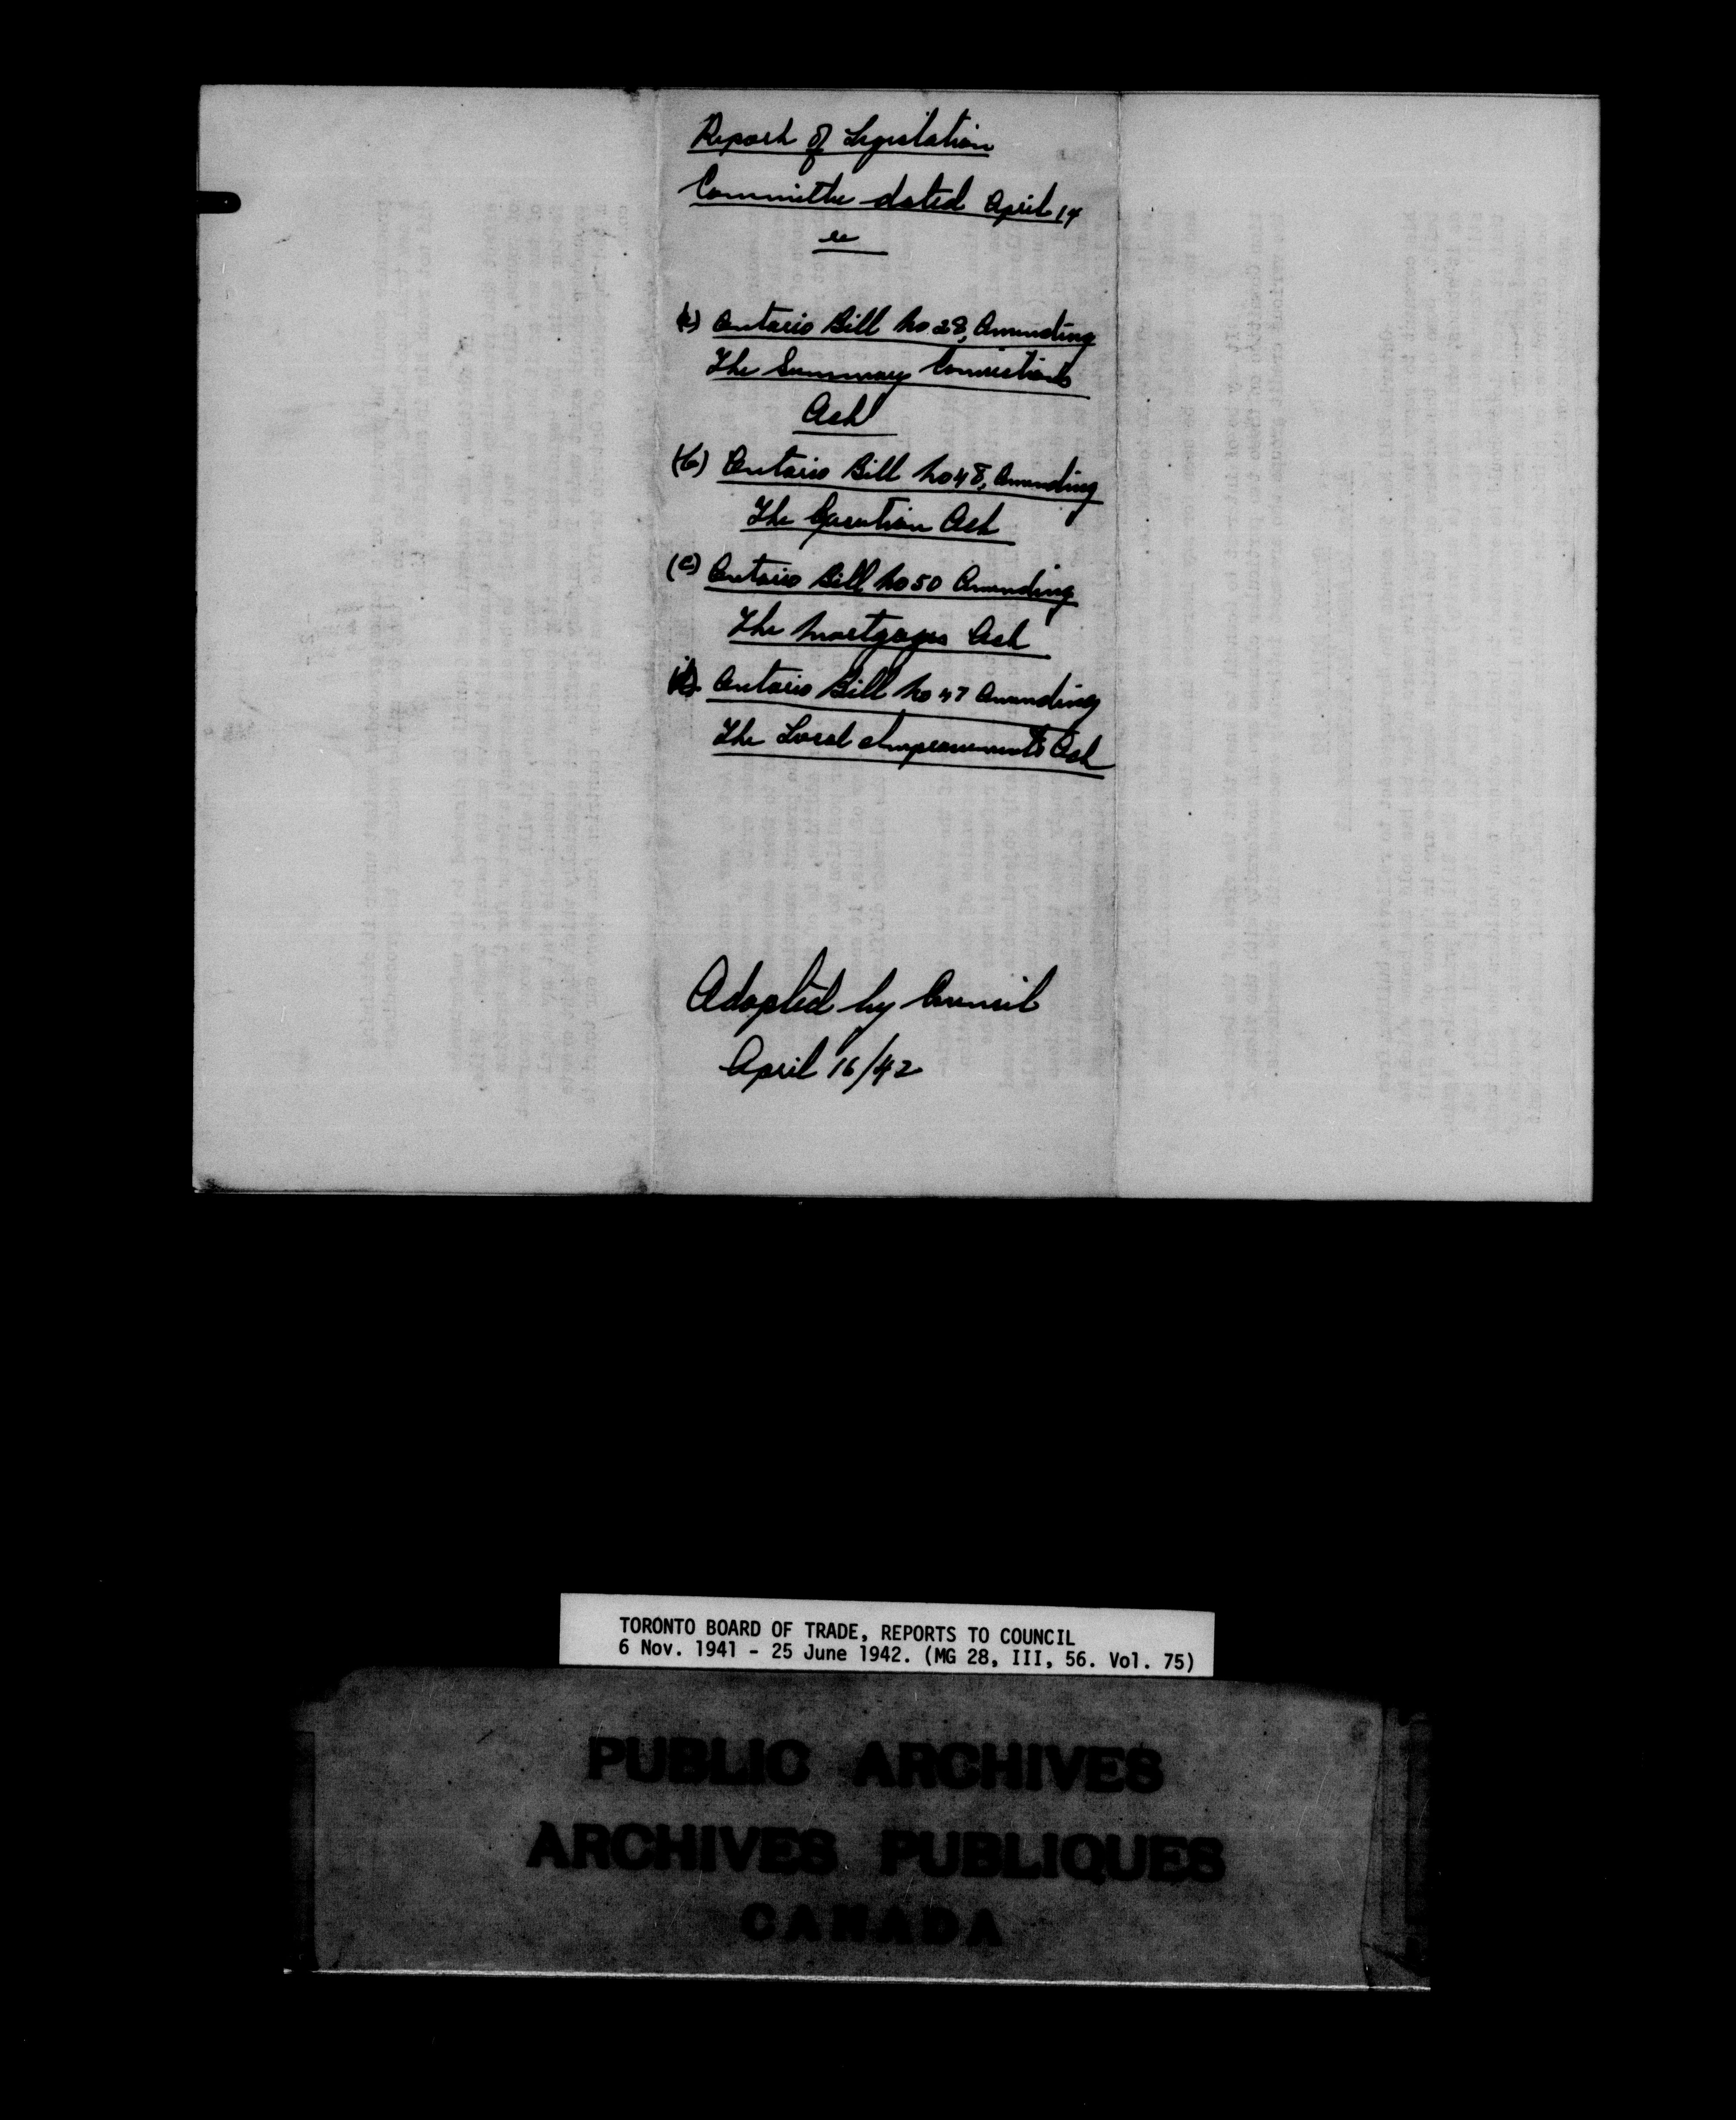 Report of Legislation
Committee dated April 14
re
(a) Ontario Bill No 28, Amending
The Summary Convictions
Act
(b) Ontario Bill No 48, Amending
The Execution Act
(c) Ontario Bill No 50 Amending
The Mortgages Act
(d) Ontario Bill No 47 Amending
The Local Improvements Act
Adopted by Council
April 16/42
TORONTO BOARD OF TRADE, REPORTS TO COUNCIL
6 Nov. 1941 - 25 June 1942. (MG 28, III, 56. Vol. 75)
PUBLIC ARCHIVES
ARCHIVES PUBLIQUES
CANADA